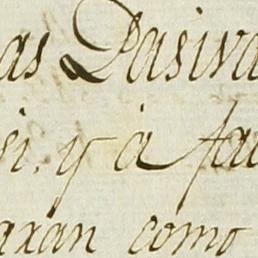 as Pasiva
si, y à fa
axan como